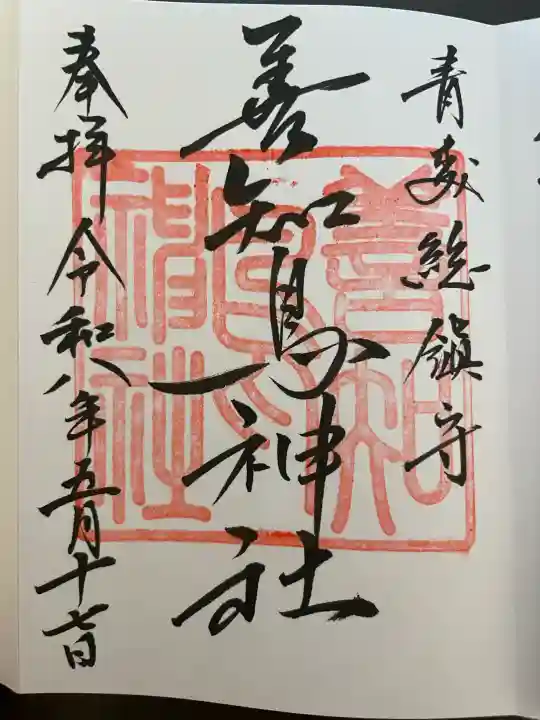 青森総鎮守
善知鳥神社
奉拝 令和八年五月十七日
善知鳥神社